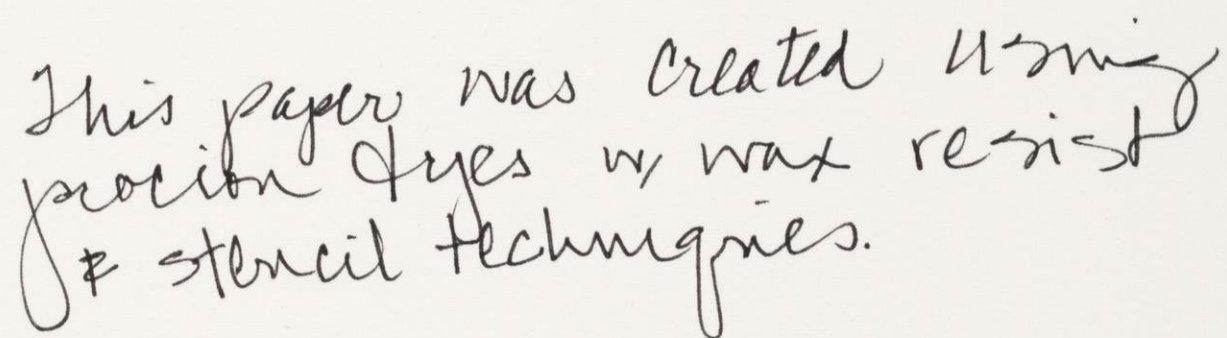 This paper was created using
procion dyes w/ wax resist
& stencil techniques.